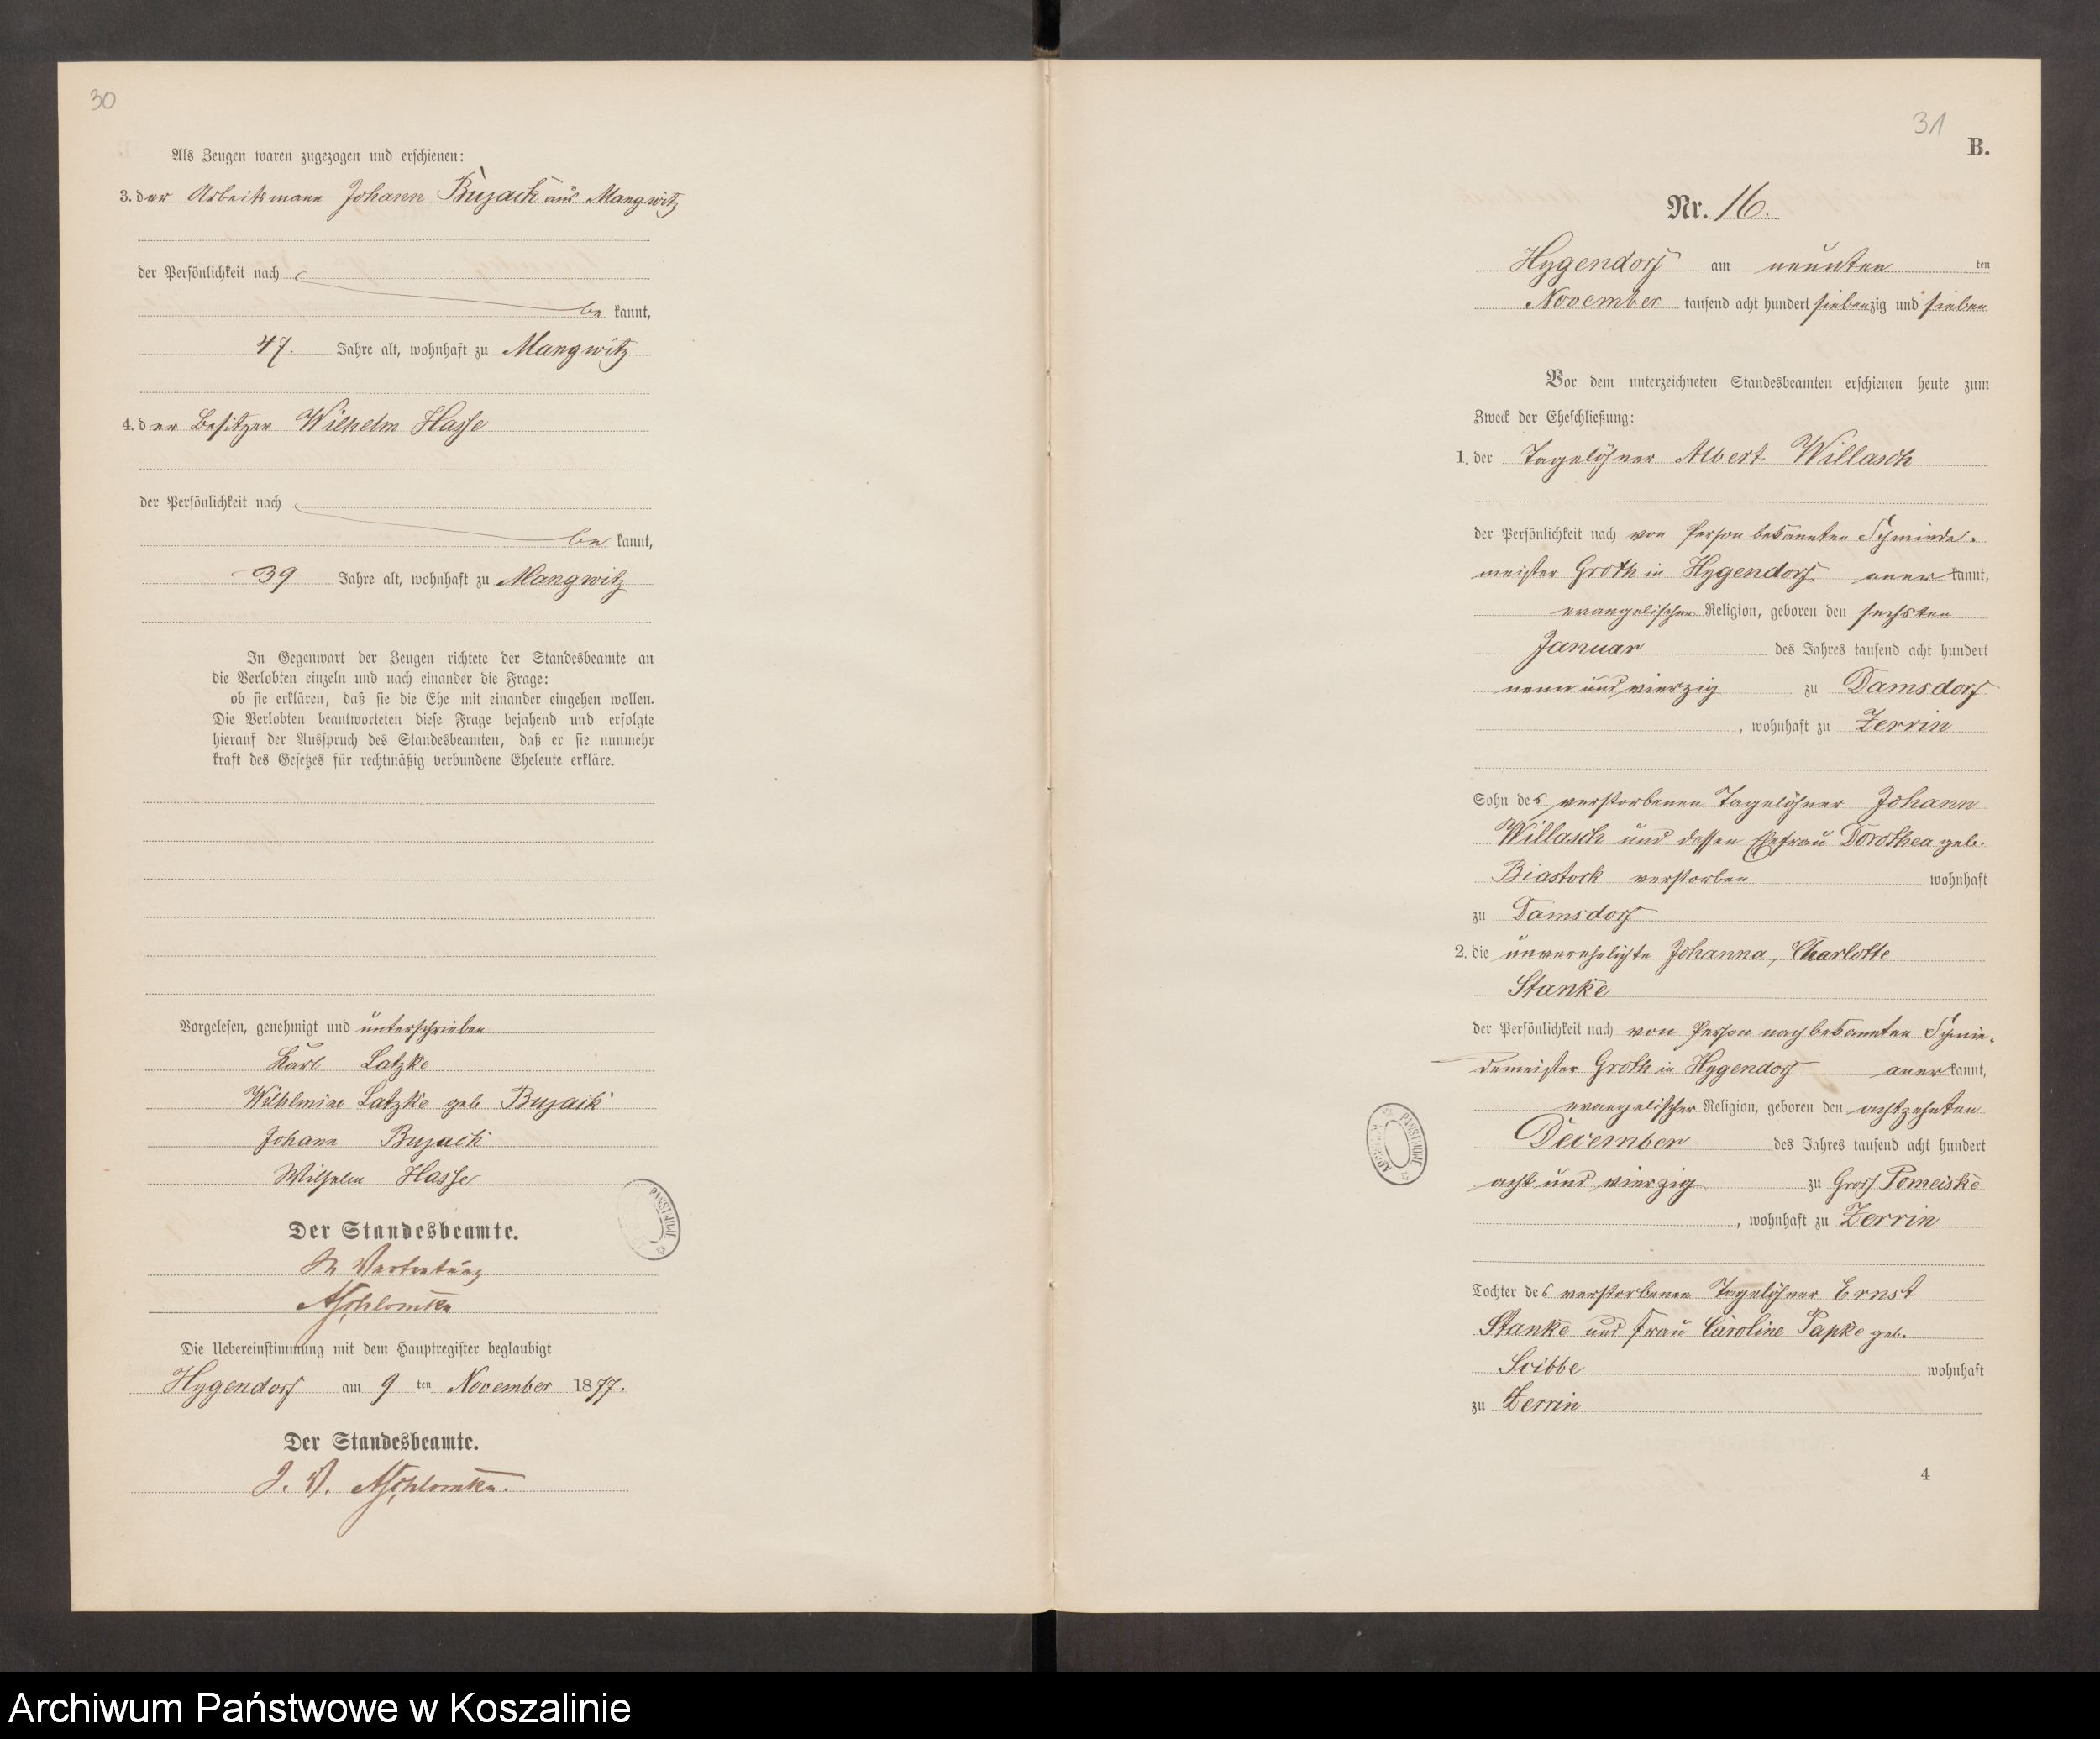 30
Als Zeugen waren zugezogen und erschienen:
3. der Arbeitsmann Johann Bujack aus Mangwitz
der Persönlichkeit nach
be kannt,
47. Jahre alt, wohnhaft zu Mangwitz
4. der Besitzer Wilhelm Hasse
der Persönlichkeit nach
be kannt,
39 Jahre alt, wohnhaft zu Mangwitz
In Gegenwart der Zeugen richtete der Standesbeamte an
die Verlobten einzeln und nach einander die Frage:
ob sie erklären, daß sie die Ehe mit einander eingehen wollen.
Die Verlobten beantworteten diese Frage bejahend und erfolgte
hierauf der Ausspruch des Standesbeamten, daß er sie nunmehr
kraft des Gesetzes für rechtmäßig verbundene Eheleute erkläre.
Vorgelesen, genehmigt und unterschrieben
Karl Latzke
Wilhlmine Latzke geb Bujack
Johann Bujack
Wilhelm Hasse
Der Standesbeamte.
In Vertretung
Die Uebereinstimmung mit dem Hauptregister beglaubigt
Hygendorf am 9 ten November 1877.
Der Standesbeamte.
J. V.
31
B.
Nr. 16.
Hygendorf am neunten ten
November tausend acht hundert siebenzig und sieben
Vor dem unterzeichneten Standesbeamten erschienen heute zum
Zweck der Eheschließung:
1. der Tagelöhner Albert Willasch
der Persönlichkeit nach von Person bekannten Schmiede-
meister Groth in Hygendorf aner kannt,
evangelischer Religion, geboren den sechsten
Januar des Jahres tausend acht hundert
neun und vierzig zu Damsdorf
, wohnhaft zu Zerrin
Sohn des verstorbenen Tagelöhner Johann
Willasch und dessen Ehefrau Dorothea geb.
Biastock verstorben wohnhaft
zu Damsdorf
2. die unverehelichte Johanna, Charlotte
Stanke
der Persönlichkeit nach von Person nach bekannten Schmie-
demeister Groth in Hygendorf aner kannt,
evangelischer Religion, geboren den achtzehnten
December des Jahres tausend acht hundert
acht und vierzig zu Gross Pomeiske
, wohnhaft zu Zerrin
Tochter des verstorbenen Tagelöhner Ernst
Stanke und Frau Caroline Papke geb.
Scibbe wohnhaft
zu Zerrin
4
ARCHIWUM PAŃSTWOWE
Archiwum Państwowe w Koszalinie